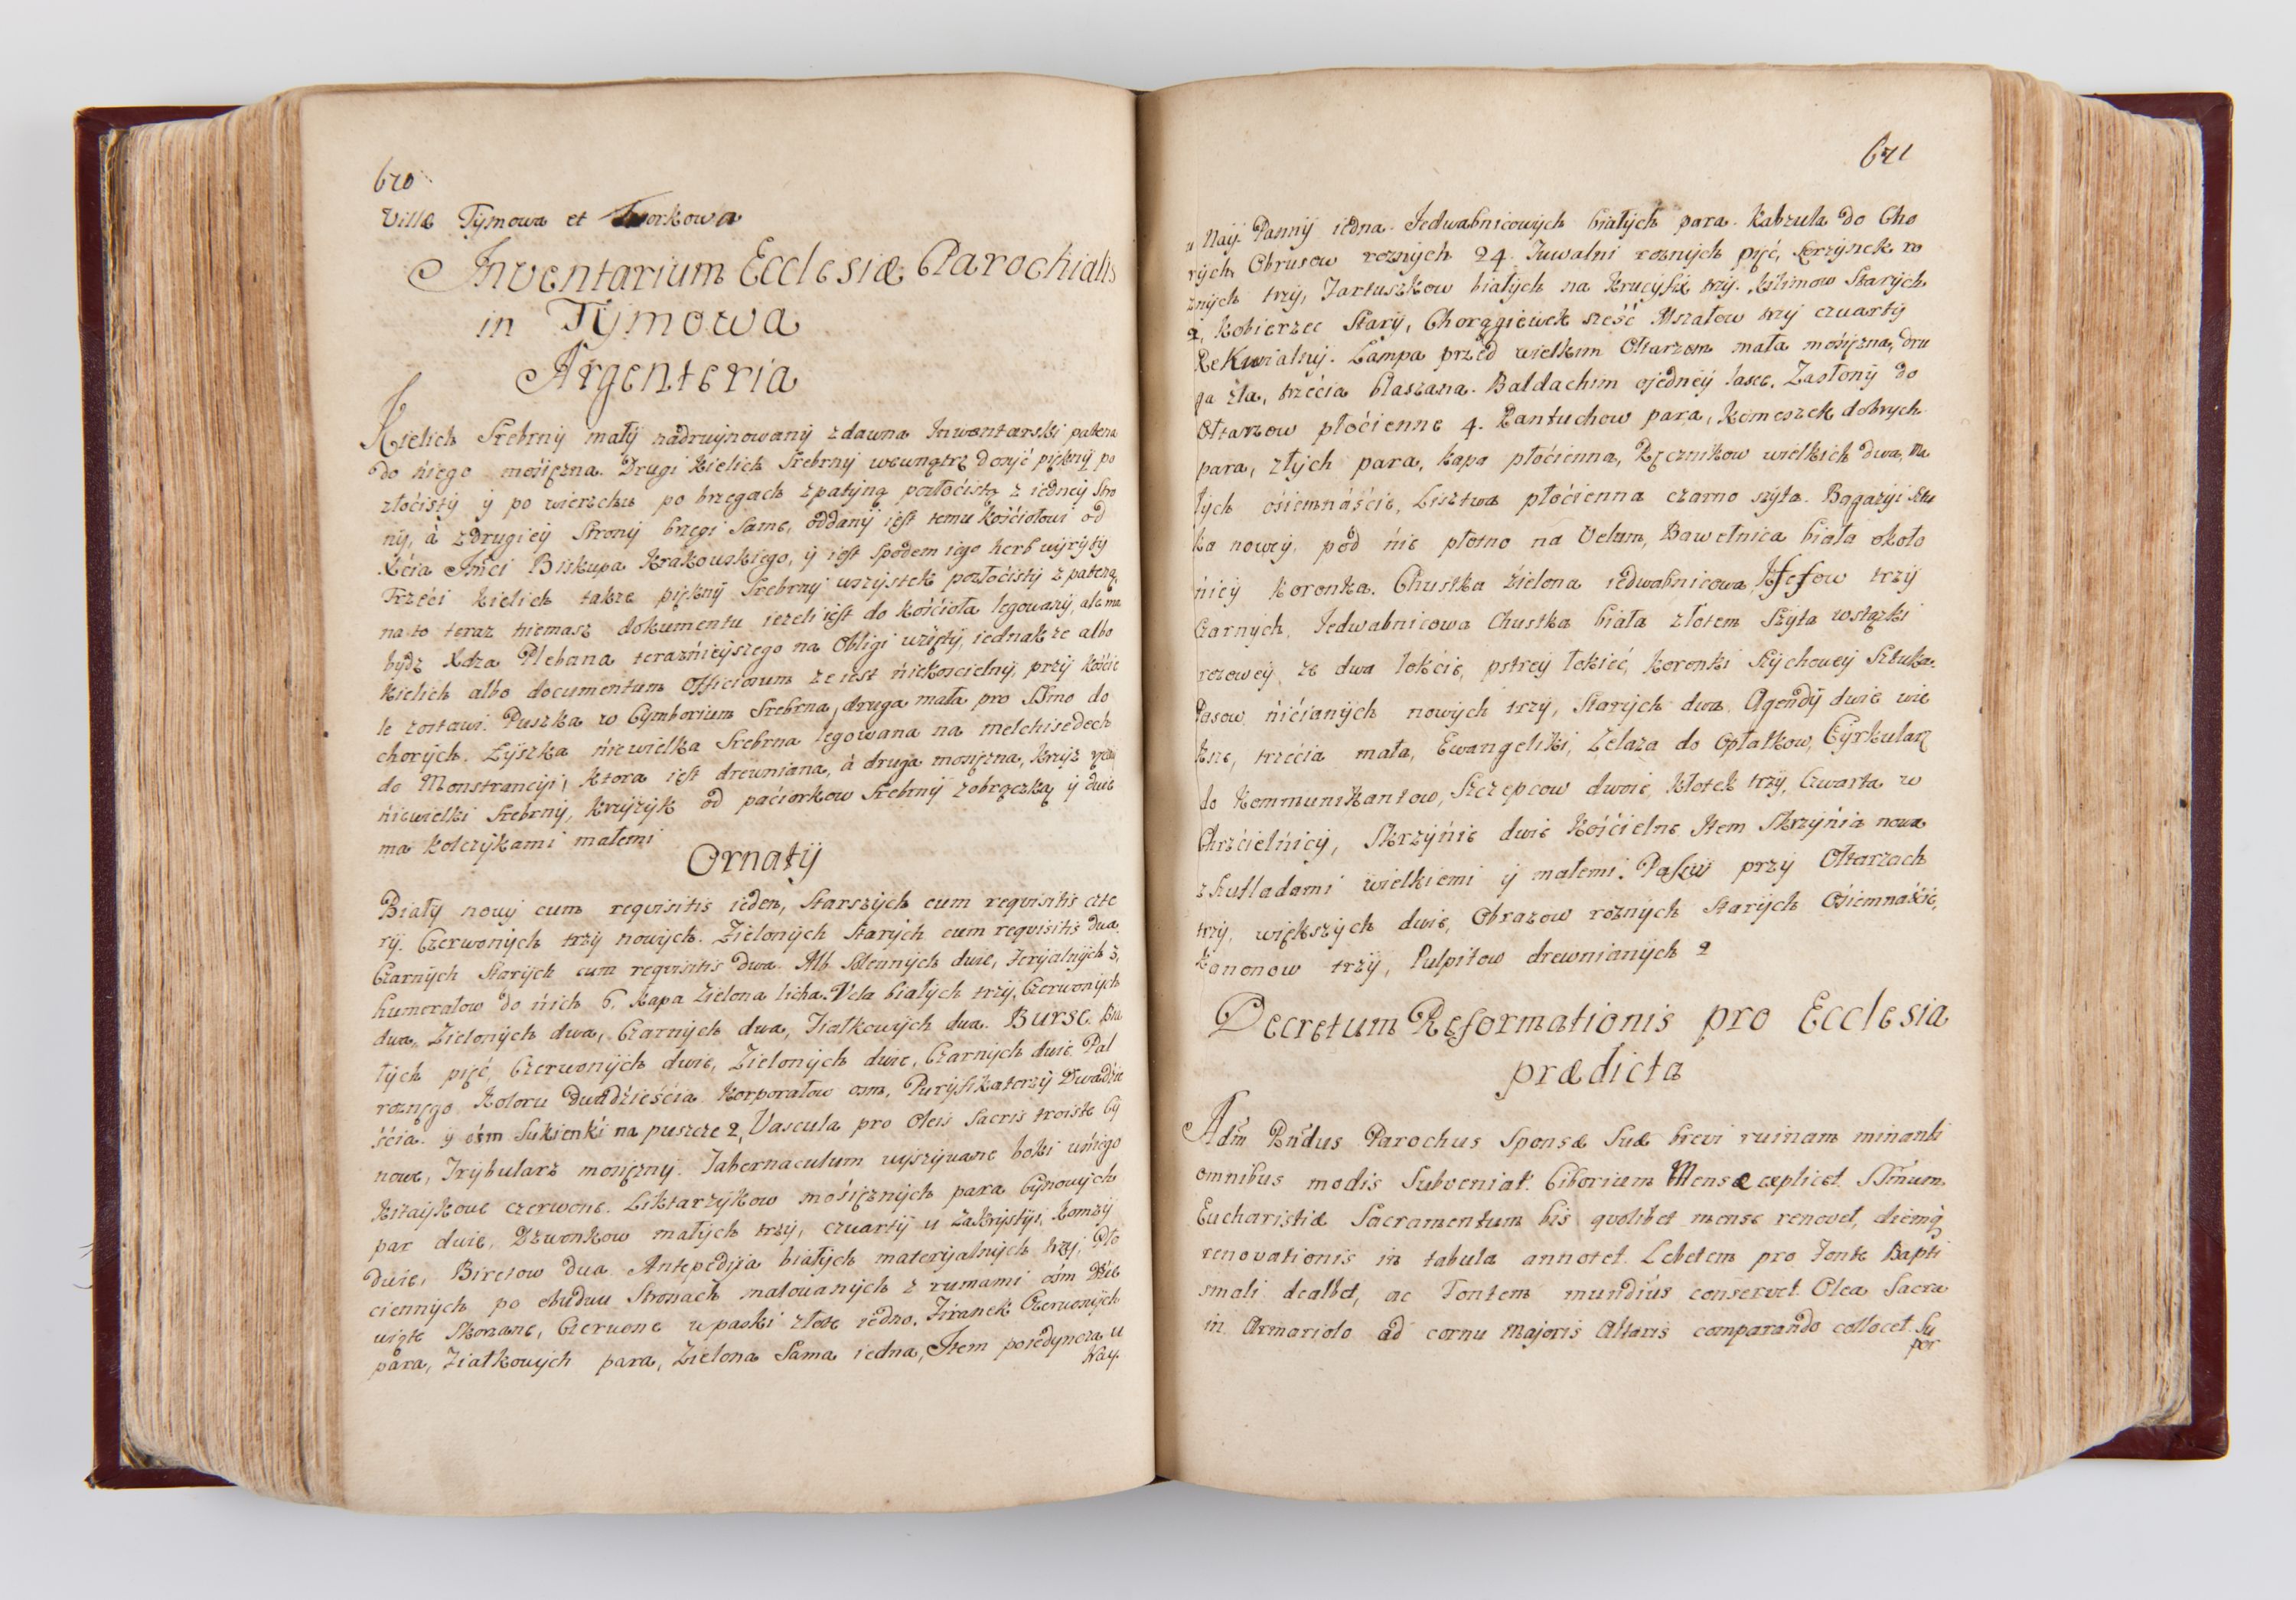 670
Villæ Tymowa et Tworkowa
Inventarium Ecclesiæ Parochialis
in Tymowa
Argenteria
Kielich Srebrny mały nadruynowany zdawna Inwentarski patena
do niego mosiężna. Drugi kielich Srebrny wewnątrz dosyć piękny po
złocisty y po wierzchu po brzegach zpatyną pozłocistą z iedney Stro
ny, à zdrugiey Strony brzegi same, oddany iest temu kościołowi od
Xcia Jmci Biskupa Krakowskiego, y iest spodem iego herb wyryty
Trzeci kielich takze piękny Srebrny wszystek pozłocisty z pateną,
na to teraz niemasz dokumentu iezeli iest do kościoła legowany, ale ma
bydz Xdza Plebana teraznieyszego na Obligi wzięty, iednak ze albo
kielich albo documentum Officiosum ze iest niekoscielny, przy koście
le zostawi. Puszka w Cymborium Srebrna, druga mała pro SSmo do
chorych. Łyszka niewielka Srebrna legowana na melchisedech
do Monstrancyi, ktora iest drewniana, à druga mosiężna, krzyż
niewielki Srebrny, krzyżyk od paciorkow Srebrny zobrączką y dwie
ma kolczykami małemi
Ornaty
Biały nowy cum requisitis ieden, Starszych cum requisitis czte
ry. Czerwonych trzy nowych. Zielonych Starych cum requisitis dwa.
Czarnych Starych cum requisitis dwa. Alb Solennych dwie, feryalnych 3,
humerałow do nich 6. kapa Zielona licha. Vela białych trzy, Czerwonych
dwa, Zielonych dwa, Czarnych dwa, Fiałkowych dwa. Burse. Bia
łych pięć, Czerwonych dwie, Zielonych dwie, Czarnych dwie. Pal
roznego koloru dwadzieścia. Korporałow osm, Puryfikaterzy Dwadzie
ścia y osm Sukienki na puszcze 2, Vascula pro Oleis Sacris troiste Cy
nowe, Trybularz mosiężny. Tabernaculum wyszywane boki u niego
kitaykowe czerwone. Liktarzykow mosiężnych para Cynowych
par dwie. Dzwonkow małych trzy, czwarty u Zakrystyi, komży
dwie, Biretow dwa. Antepedyia białych materyalnych trzy, Płó
ciennych po obudwu Stronach malowanych z rumami osm Dzie
wiąte Skorzane, Czerwone w paski złote iedno. Firanek Czerwonych
para, Fiałkowych para, Zielona Sama iedna, Item poiedyncza u
Nay.
671
u Nayś Panny iedna. Jedwabnicowych białych para. Kabzula do Cho
rych, Obrusow roznych 24. Tuwalni roznych pięć, skrzynek ro
znych trzy, Fartuszkow białych na krucyfix trzy. Kilimow Starych
2, kobierzec Stary, Chorągiewek sześć Mszałow trzy czwarty
Rekwialny. Lampa przed wielkim Ołtarzem mała mosiężna, dru
ga zła, trzecia blaszana. Baldachim ojedney lasce. Zasłony do
Ołtarzow płócienne 4. Rantuchow para, komeszek dobrych
para, złych para, kapa płócienna, Ręcznikow wielkich dwa, ma
łych osiemnaście, Lisztwa płócienna czarno szyta. Bagazyi sztu
ka nowey, pod nie płotno na Velum, Bawełnica biała około
niey koronka. Chustka zielona iedwabnicowa, trzy
Czarnych, Jedwabnicowa Chustka biała złotem Szyta wstązki
rozowey ze dwa łokcie, pstrey łokieć, koronki Szychowey Sztuka.
Pasow nicianych nowych trzy, Starych dwa. Agendy dwie wie
ksze, trzecia mała, Ewangeliki, Zelaza do Opłatkow, Cyrkularz
do kommunikantow, Szczepcow dwoie, kłotek trzy, Czwarta w
Chrzcielnicy, Skrzynie dwie kościelne Item Skrzynia nowa
zSufladami wielkiemi y małemi. Pasyi przy Ołtarzach
trzy, większych dwie, Obrazow roznych Starych Osiemnaście,
kanonow trzy, Pulpitow drewnianych 2
Decretum Reformationis pro Ecclesia
prædicta
Adm Rndus Parochus Sponsæ Suæ brevi ruinam minanti
omnibus modis Subveniat. Ciborium Mensæ explicet. SSmum
Eucharistiæ Sacramentum bis quolibet mense renovet, diemq
renovationis in tabula annotet. Lebetem pro Fonte Bapti
smali dealbet, ac Fontem mundius conservet. Olea Sacra
in Armariolo ad cornu Majoris Altaris comparando collocet. Su
per